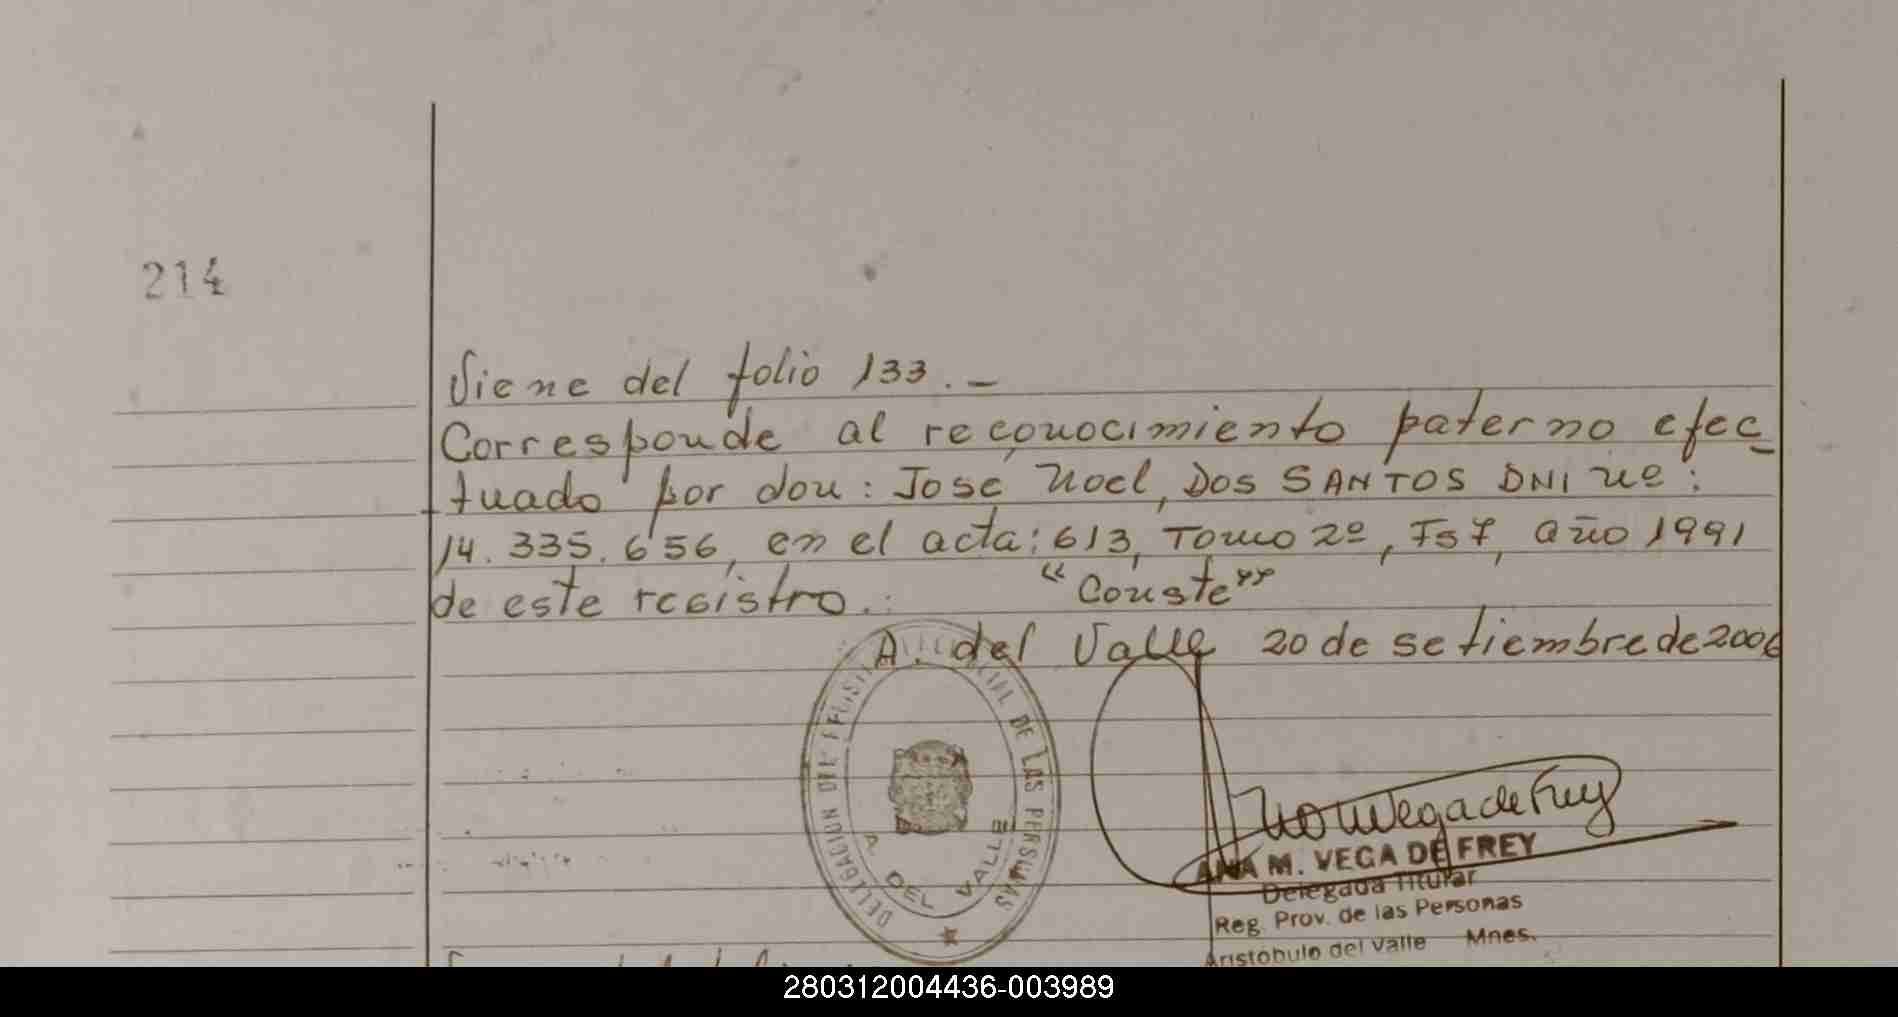 214
Viene del folio 133.-
Corresponde al reconocimiento paterno efec
tuado por don: José Noel, DOS SANTOS DNI Nº:
14.335.656, en el acta: 613, Tomo 2º, Fs 7, año 1991
de este registro.: "Conste"
A. del Valle 20 de setiembre de 2006
DELEGACION DEL REGISTRO PROVINCIAL DE LAS PERSONAS
A. DEL VALLE
Ana Vega de Frey
ANA M. VEGA DE FREY
Delegada Titular
Reg. Prov. de las Personas
Aristóbulo del Valle Mnes.
280312004436-003989